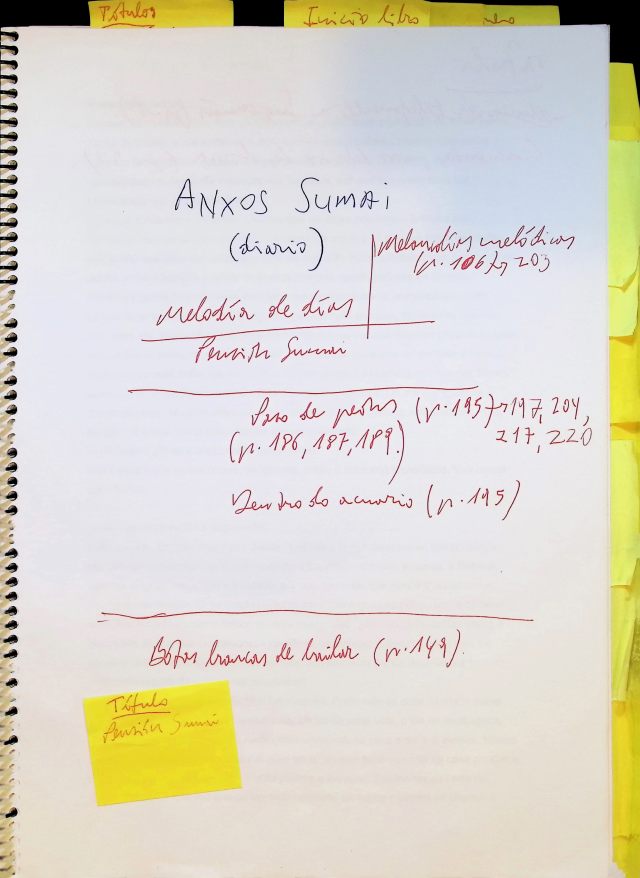 Títulos
Inicio libro
ANXOS SUMAI
(diario)
melodías melódicas
(p. 106) y 203
Melodía de días
Pensión Sumai
Paso de peóns (p. 195) → 197, 204,
217, 220
(p. 186, 187, 189.)
Dentro do acuario (p. 195)
Botas brancas de bailar (p. 149).
Título
Pensión Sumai